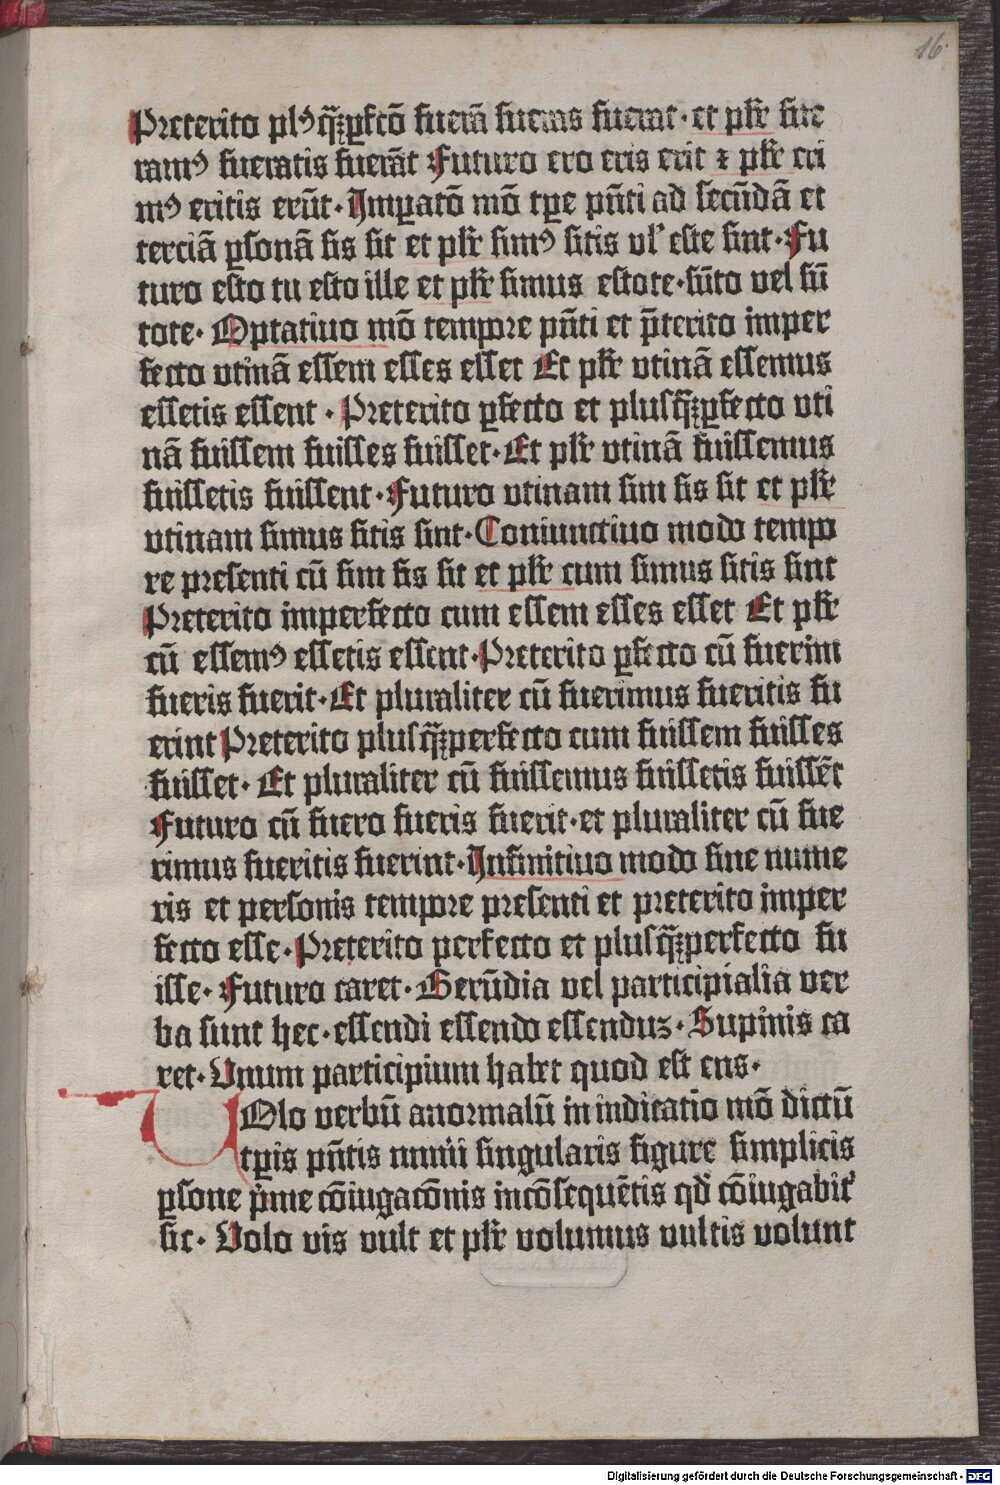 16
Preterito plꝰq̄ꝫꝑfcō fuerā fueras fuerat · et plr̄ fue
ramꝰ fueratis fuerāt Futuro ero eris erit ⁊ plr̄ eri
mꝰ eritis erūt · Imꝑatō mō tꝑe pn̄ti ad secūdā et
terciā ꝑsonā sis sit et plr̄ simꝰ sitis vl' este sint · Fu
turo esto tu esto ille et plr̄ simus estote · sūto vel sū
tote · Optatiuo mō tempore pn̄ti et p̄terito imper
fecto vtinā essem esses esset Et plr̄ vtinā essemus
essetis essent · Preterito ꝑfecto et plusq̄ꝫꝑfecto vti
nā fuissem fuisses fuisset · Et plr̄ vtinā fuissemus
fuissetis fuissent · Futuro vtinam sim sis sit et plr̄
vtinam simus sitis sint · Coniunctiuo modo tempo
re presenti cū sim sis sit et plr̄ cum simus sitis sint
Preterito imperfecto cum essem esses esset Et plr̄
cū essemꝰ essetis essent · Preterito ꝑfecto cū fuerim
fueris fuerit · Et pluraliter cū fuerimus fueritis fu
erint Preterito plusq̄ꝫperfecto cum fuissem fuisses
fuisset · Et pluraliter cū fuissemus fuissetis fuissēt
Futuro cū fuero fueris fuerit · et pluraliter cū fue
rimus fueritis fuerint · Infinitiuo modo sine nume
ris et personis tempore presenti et preterito imper
fecto esse · Preterito perfecto et plusq̄ꝫperfecto fu
isse · Futuro caret · Gerūdia vel participialia ver
ba sunt hec · essendi essendo essenduz · Supinis ca
ret · Vnum participium habet quod est ens ·
VOlo verbū anormalū in indicatio mō dictū
tꝑis pn̄tis nūi singularis figure simplicis
ꝑsone p̄me cōiugacōnis incōsequētis qd̄ cōiugabit'
sic · Volo vis vult et plr̄ volumus vultis volunt
Digitalisierung gefördert durch die Deutsche Forschungsgemeinschaft - DFG